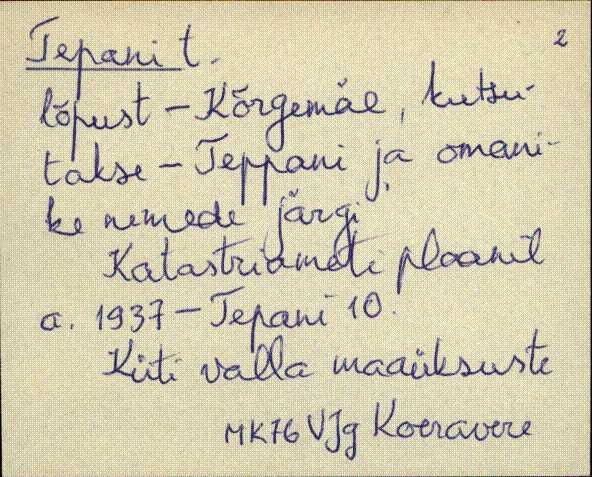 Tepani t. 2
lõpust - Kõrgemäe, kutsu-
takse - Teppani ja omani-
ke nimede järgi.
Katastriameti plaanil
a. 1937 - Tepani 10.
Kiiti valla maaüksuste
MK76 VJg Koeravere